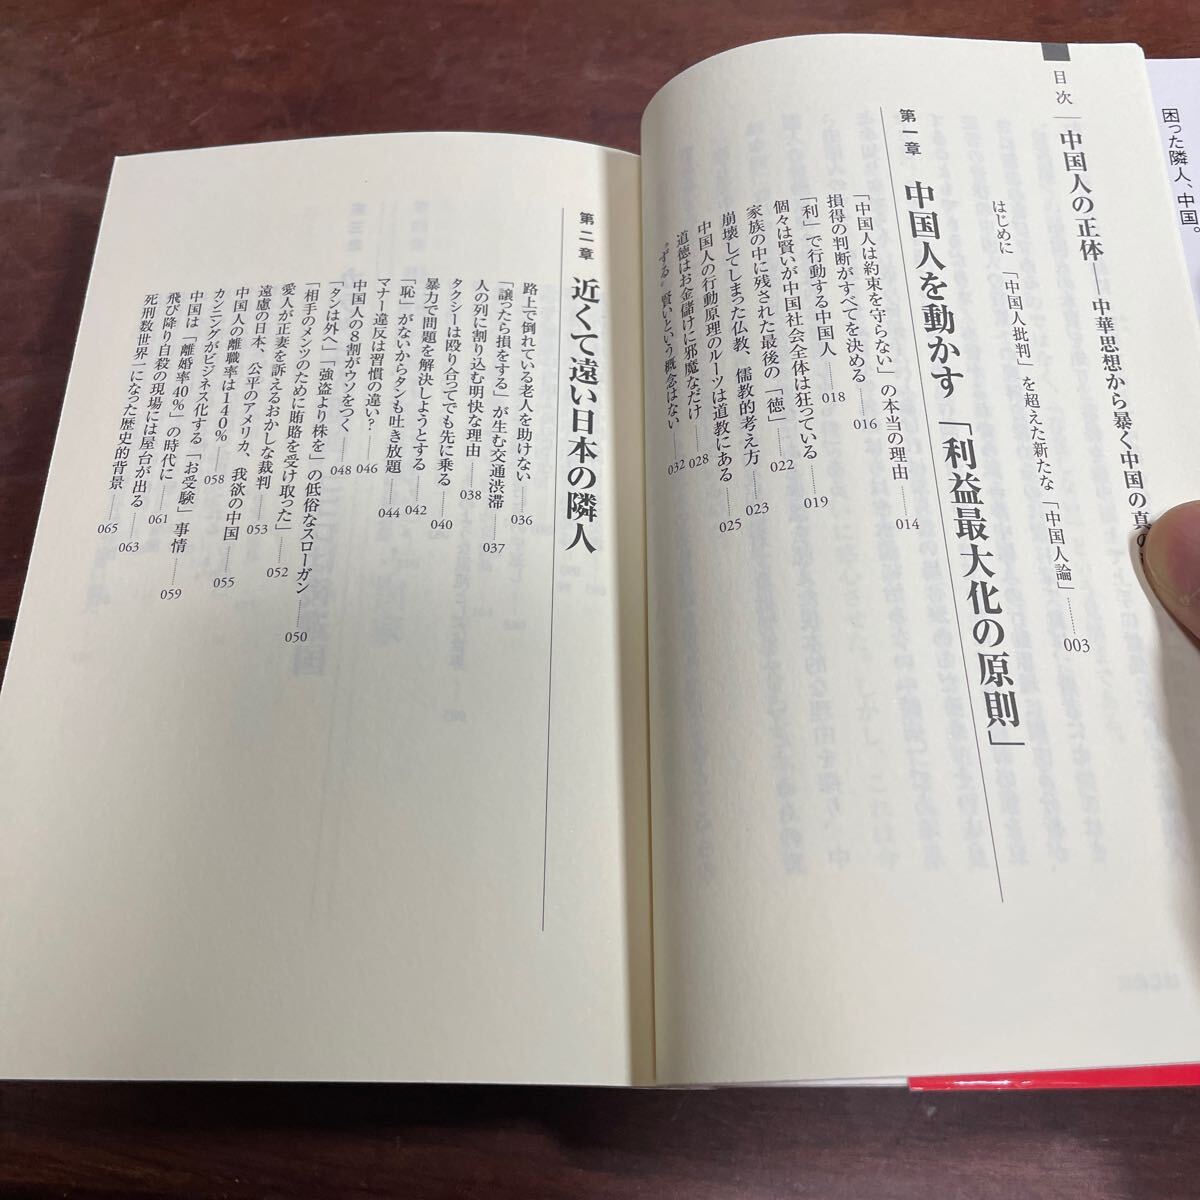 困った隣人、中国。
目次
中国人の正体――中華思想から暴く中国の真の
はじめに 「中国人批判」を超えた新たな「中国人論」……003
第一章 中国人を動かす「利益最大化の原則」
「中国人は約束を守らない」の本当の理由……014
損得の判断がすべてを決める……016
「利」で行動する中国人……018
個々は賢いが中国社会全体は狂っている……019
家族の中に残された最後の「徳」……022
崩壊してしまった仏教、儒教的考え方……023
中国人の行動原理のルーツは道教にある……025
道徳はお金儲けに邪魔なだけ……028
〝ずる〟賢いという概念はない……032
第二章 近くて遠い日本の隣人
路上で倒れている老人を助けない……036
「譲ったら損をする」が生む交通渋滞……037
人の列に割り込む明快な理由……038
タクシーは殴り合ってでも先に乗る……040
暴力で問題を解決しようとする……042
「恥」がないからタンも吐き放題……044
マナー違反は習慣の違い?……046
中国人の8割がウソをつく……048
「タンは外へ」「強盗より株を」の低俗なスローガン……050
「相手のメンツのために賄賂を受け取った」……052
愛人が正妻を訴えるおかしな裁判……053
遠慮の日本、公平のアメリカ、我欲の中国……055
中国人の離職率は140%……058
カンニングがビジネス化する「お受験」事情……059
中国は「離婚率40%」の時代に……061
飛び降り自殺の現場には屋台が出る……063
死刑数世界一になった歴史的背景……065